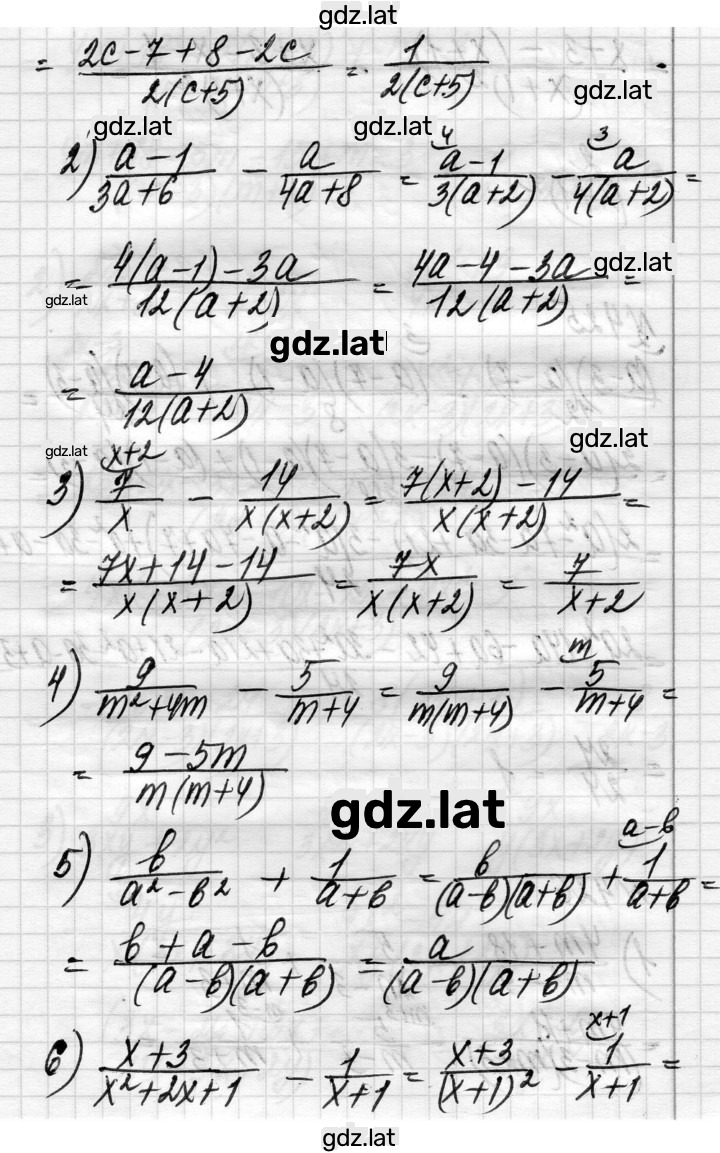 gdz.lat
= (2c-7+8-2c)/(2(c+5)) = 1/(2(c+5))
gdz.lat
gdz.lat gdz.lat
2) (a-1)/(3a+6) - a/(4a+8) = ⁴⁾(a-1)/(3(a+2)) - ³⁾a/(4(a+2)) =
= (4(a-1)-3a)/(12(a+2)) = (4a-4-3a)/(12(a+2)) =
gdz.lat gdz.lat
gdz.lat
= (a-4)/(12(a+2))
gdz.lat gdz.lat
3) ˣ⁺²⁾7/x - 14/(x(x+2)) = (7(x+2)-14)/(x(x+2)) =
= (7x+14-14)/(x(x+2)) = 7x/(x(x+2)) = 7/(x+2)
4) 9/(m²+4m) - 5/(m+4) = 9/(m(m+4)) - ᵐ⁾5/(m+4) =
= (9-5m)/(m(m+4))
gdz.lat
5) b/(a²-b²) + 1/(a+b) = b/((a-b)(a+b)) + ᵃ⁻ᵇ⁾1/(a+b) =
= (b+a-b)/((a-b)(a+b)) = a/((a-b)(a+b))
6) (x+3)/(x²+2x+1) - 1/(x+1) = (x+3)/((x+1)²) - ˣ⁺¹⁾1/(x+1) =
gdz.lat